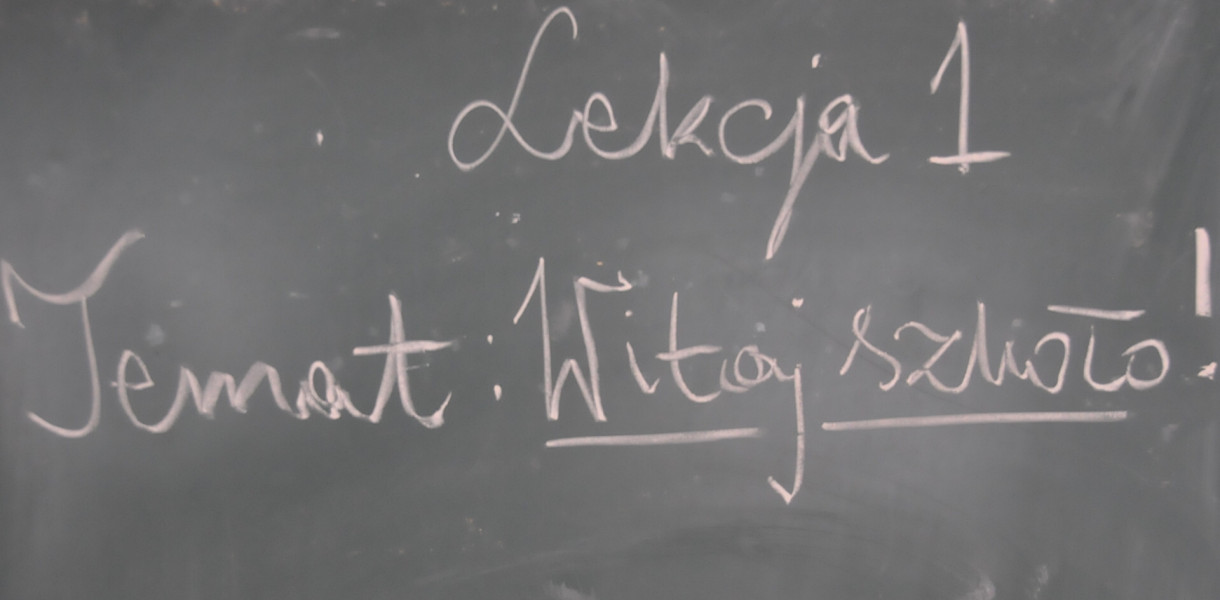 Lekcja 1
Temat: Witaj szkoło!